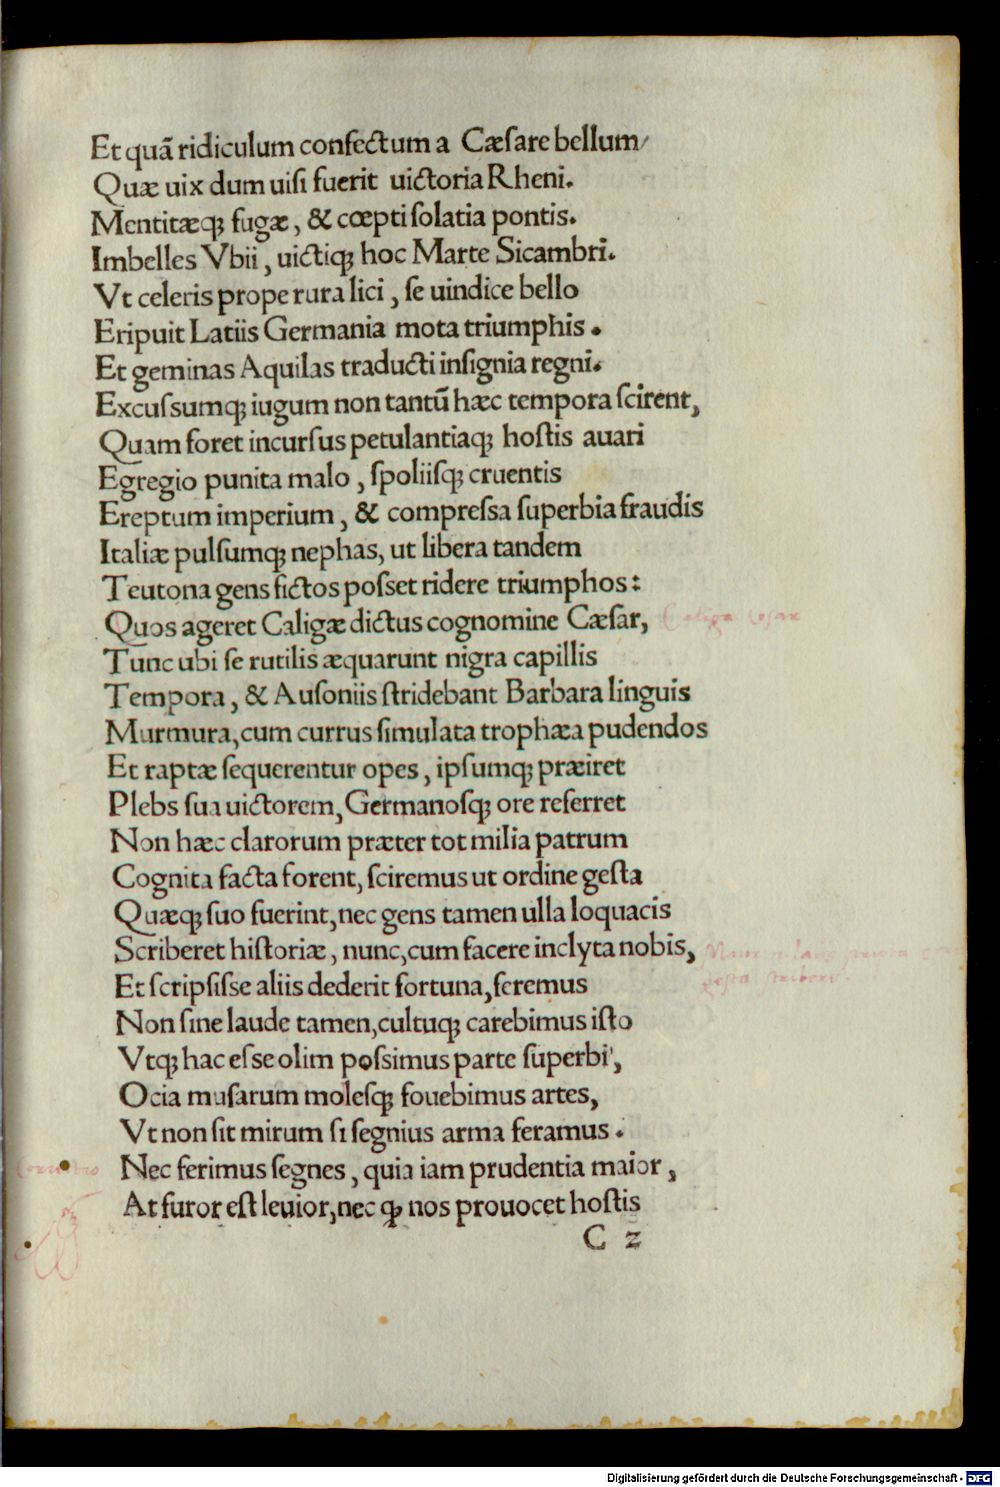 Et quā ridiculum confectum a Cæſare bellum/
Quæ uix dum uiſi fuerit uictoria Rheni.
Mentitæq; fugæ, & cœpti ſolatia pontis.
Imbelles Vbii, uictiq; hoc Marte Sicambri.
Vt celeris prope rura lici, ſe uindice bello
Eripuit Latiis Germania mota triumphis.
Et geminas Aquilas traducti inſignia regni.
Excuſsumq; iugum non tantū hæc tempora ſcirent,
Quam foret incurſus petulantiaq; hoſtis auari
Egregio punita malo, ſpoliiſq; cruentis
Ereptum imperium, & compreſsa ſuperbia fraudis
Italiæ pulſumq; nephas, ut libera tandem
Teutona gens fictos poſset ridere triumphos:
Quos ageret Caligæ dictus cognomine Cæſar, Caliga Cesar
Tunc ubi ſe rutilis æquarunt nigra capillis
Tempora, & Auſoniis ſtridebant Barbara linguis
Murmura, cum currus ſimulata trophæa pudendos
Et raptæ ſequerentur opes, ipſumq; præiret
Plebs ſua uictorem, Germanoſq; ore referret
Non hæc clarorum præter tot milia patrum
Cognita facta forent, ſciremus ut ordine geſta
Quæq; ſuo fuerint, nec gens tamen ulla loquacis
Scriberet hiſtoriæ, nunc, cum facere inclyta nobis,
Et ſcripſiſse aliis dederit fortuna, feremus
gesta scribere.
Non ſine laude tamen, cultuq; carebimus iſto
Vtq; hac eſse olim poſsimus parte ſuperbi,
Ocia muſarum moleſq; fouebimus artes,
Vt non ſit mirum ſi ſegnius arma feramus.
Nec ferimus ſegnes, quia iam prudentia maior,
At furor eſt leuior, nec ꝙ nos prouocet hoſtis
C 2
Digitalisierung gefördert durch die Deutsche Forschungsgemeinschaft - DFG